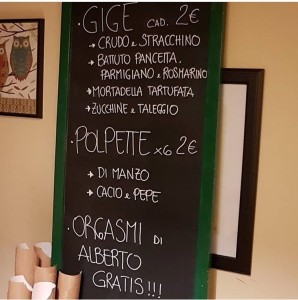 · GIGE CAD. 2€
→ CRUDO e STRACCHINO
→ BATTUTO PANCETTA,
PARMIGIANO e ROSMARINO
→ MORTADELLA TARTUFATA
→ ZUCCHINE e TALEGGIO
· POLPETTE x6 2€
→ DI MANZO
→ CACIO e PEPE
· ORGASMI DI
ALBERTO
GRATIS!!!